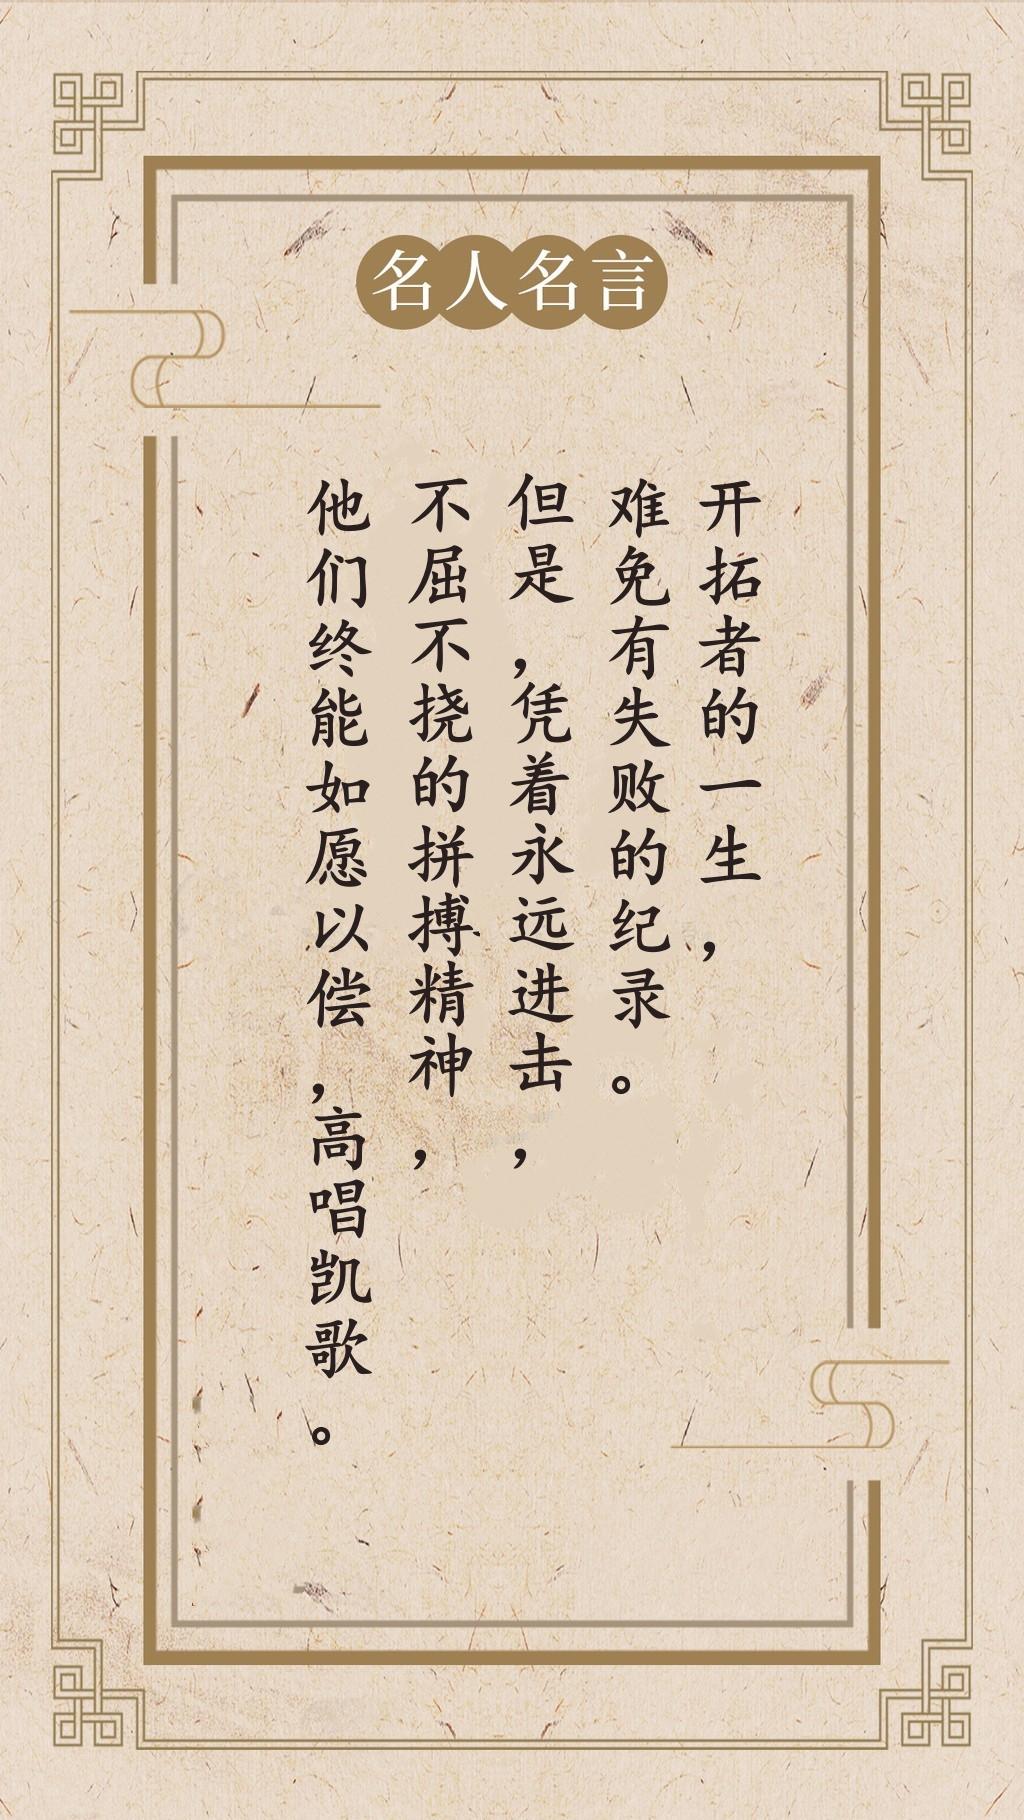 名人名言
开拓者的一生，
难免有失败的纪录。
但是，凭着永远进击，
不屈不挠的拼搏精神，
他们终能如愿以偿，高唱凯歌。